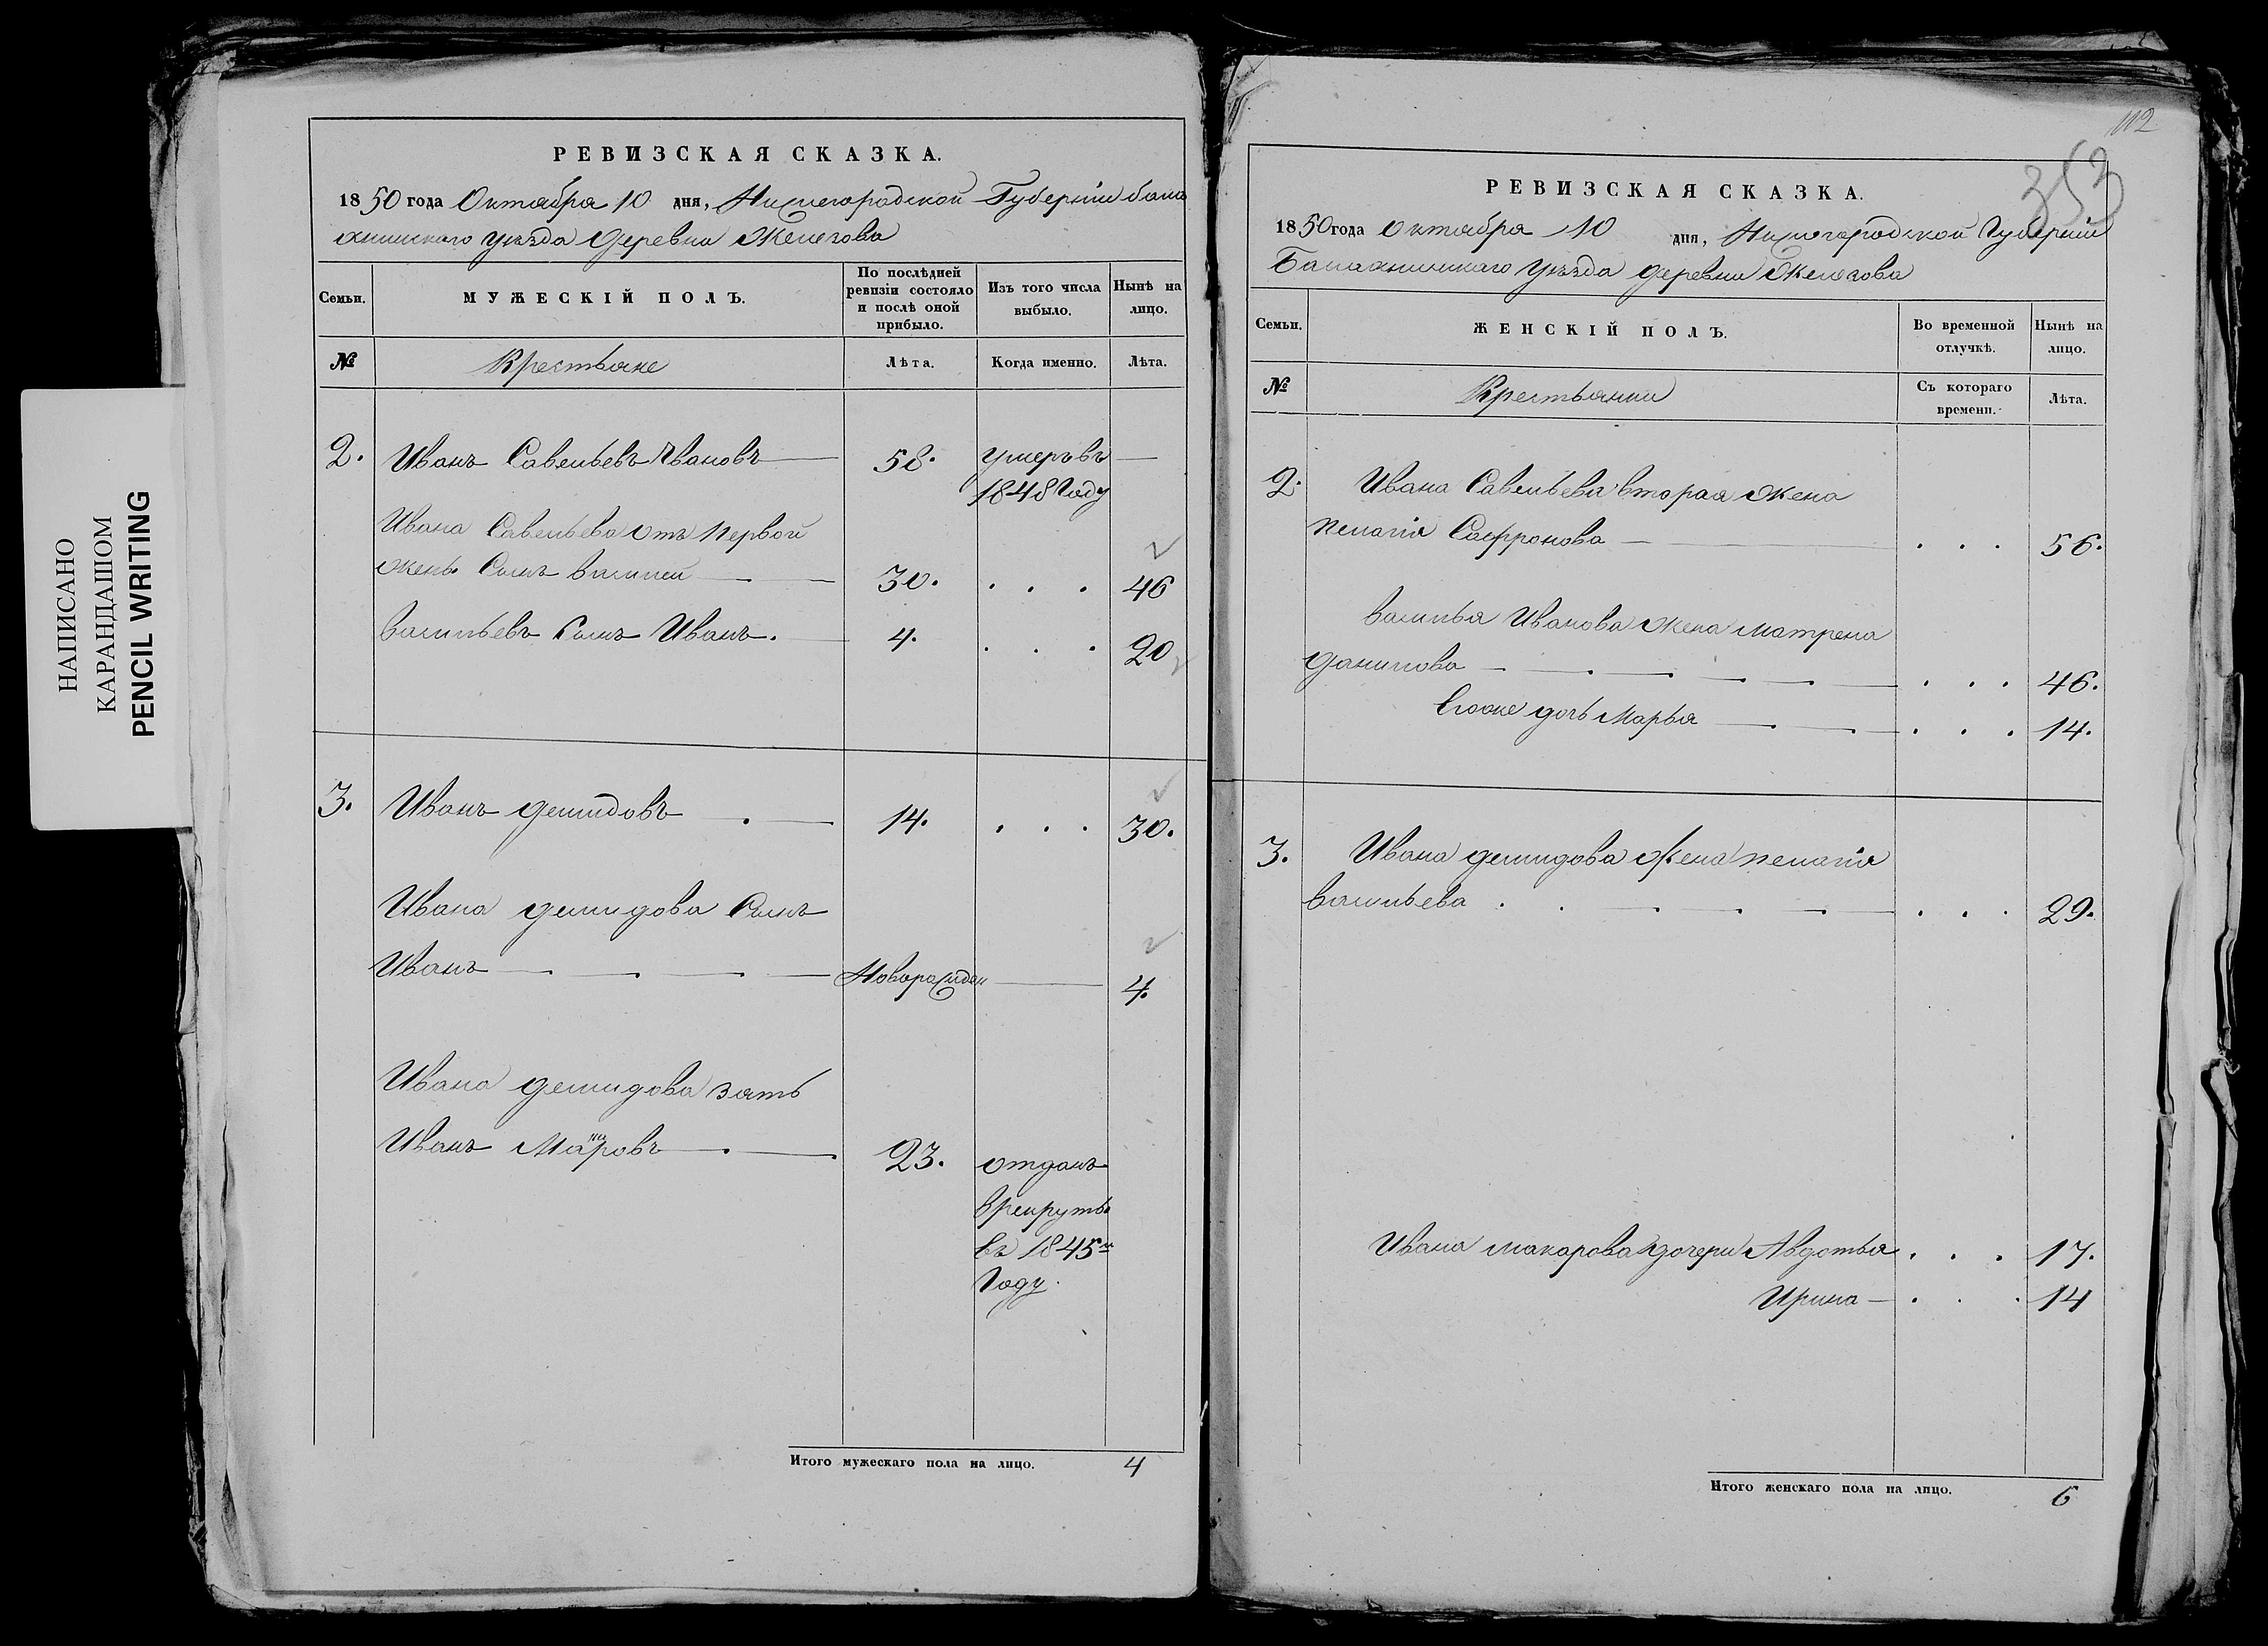 НАПИСАНО
КАРАНДАШОМ
PENCIL WRITING
РЕВИЗСКАЯ СКАЗКА.
1850 года Октября 10 дня, Нижегородской Губернiи бала
хнинскаго уѣзда деревни
Семьи.
МУЖЕСКIЙ ПОЛЪ.
По послѣдней ревизiи состояло и послѣ оной прибыло.
Изъ того числа выбыло.
Нынѣ на лицо.
№
Крестьяне
Лѣта.
Когда именно.
Лѣта.
2. Иванъ Савельевъ Ивановъ — 58. умеръ въ —
1848 Году
Ивана Савельева отъ первой
жены Сынъ василей — 30. . . . 46
васильевъ Сынъ Иванъ. — 4. . . . 20
3. Иванъ демидовъ . — 14. . . . 30.
Ивана демидова Сынъ
Иванъ — — — — — 4.
Ивана демидова зять
Иванъ — 23. отданъ
врекруты
въ 1845м
Году.
Итого мужескаго пола на лицо. 4
112
353
РЕВИЗСКАЯ СКАЗКА.
1850 года октября 10 дня, Нижегородской Губернiи
Балахнинскаго уѣзда деревни
Семьи.
ЖЕНСКIЙ ПОЛЪ.
Во временной отлучкѣ.
Нынѣ на лицо.
№
Крестьянки
Съ котораго времени.
Лѣта.
2. Ивана Савельева вторая жена
пелагiя Сафронова — . . . 56.
василья Иванова жена матрена
данилова — — — — — . . . 46.
дочь Марья — — . . . 14.
3. Ивана демидова жена пелагiя
васильева . . — — — . . . 29.
Ивана макарова дочери Авдотья . . . 17.
Ирина — . . . 14
Итого женскаго пола на лицо. 6